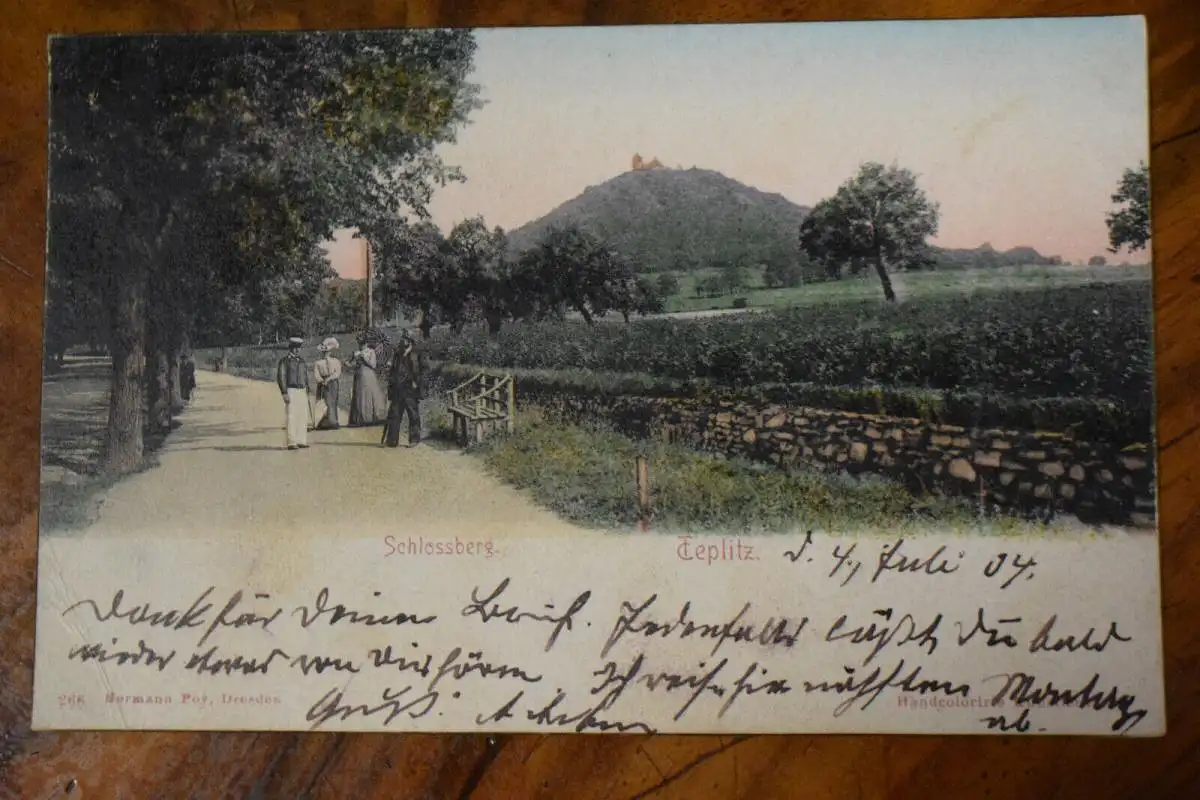 Schlossberg. Teplitz. d. 4. Juli 04.
Dank für Deinen Brief. Jedenfalls läßt Du bald
wieder etwas von Dir hören. Ich reise hier nächsten Montag
ab.
Gruß!
266 Hermann Poy, Dresden Handcolorirte